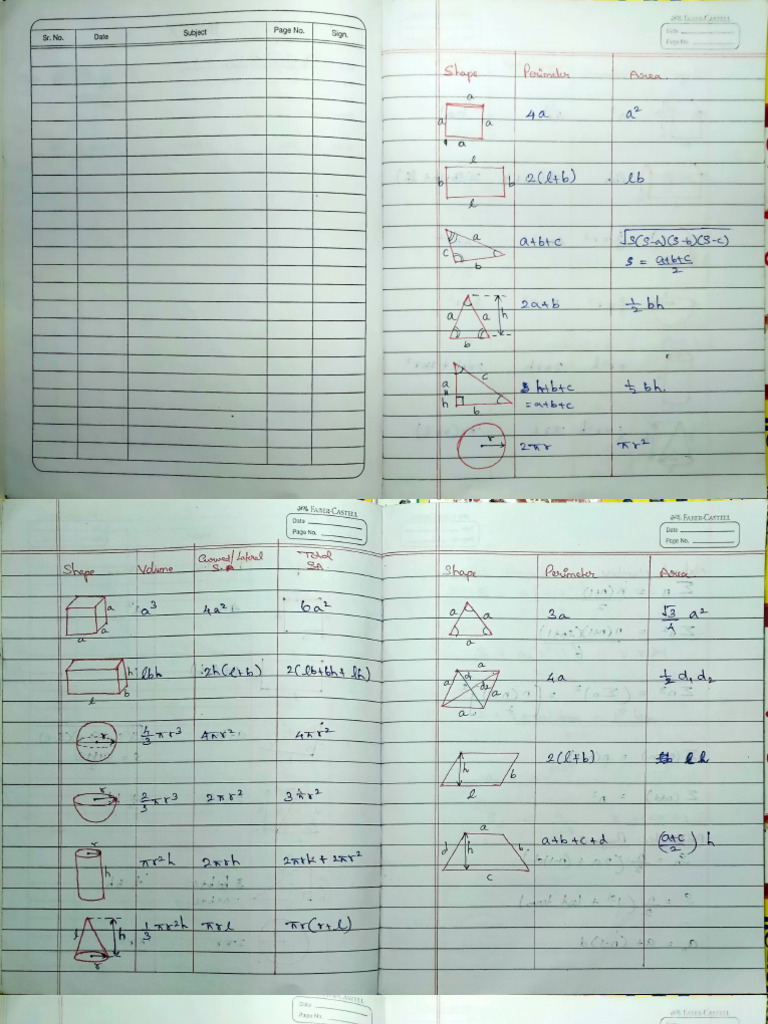 Sr. No. Date Subject Page No. Sign.
FABER-CASTELL
Date
Page No.
Shape Perimeter Area
a
a a 4a a²
a
l
b b 2(l+b) lb
l
a
c a+b+c √S(S-a)(S-b)(S-c)
b S = a+b+c/2
a a h 2a+b 1/2 bh
b
a c h+b+c 1/2 bh.
h b = a+b+c
r 2πr πr²
FABER-CASTELL
Date
Page No.
Shape Volume Curved/Lateral S.A Total SA
a a³ 4a² 6a²
a a
h lbh 2h(l+b) 2(lb+bh+lh)
l b
r 4/3 πr³ 4πr² 4πr²
r 2/3 πr³ 2πr² 3πr²
r
h πr²h 2πrh 2πrh + 2πr²
l h 1/3 πr²h πrl πr(r+l)
r
FABER-CASTELL
Date
Page No.
Shape Perimeter Area
a a 3a √3/4 a²
a
a
a d₁ d₂ a 4a 1/2 d₁ d₂
a
h b 2(l+b) lh
l
a
d h b a+b+c+d (a+c/2) h
c
FABER-CASTELL
Date
Page No.
Date
Page No.